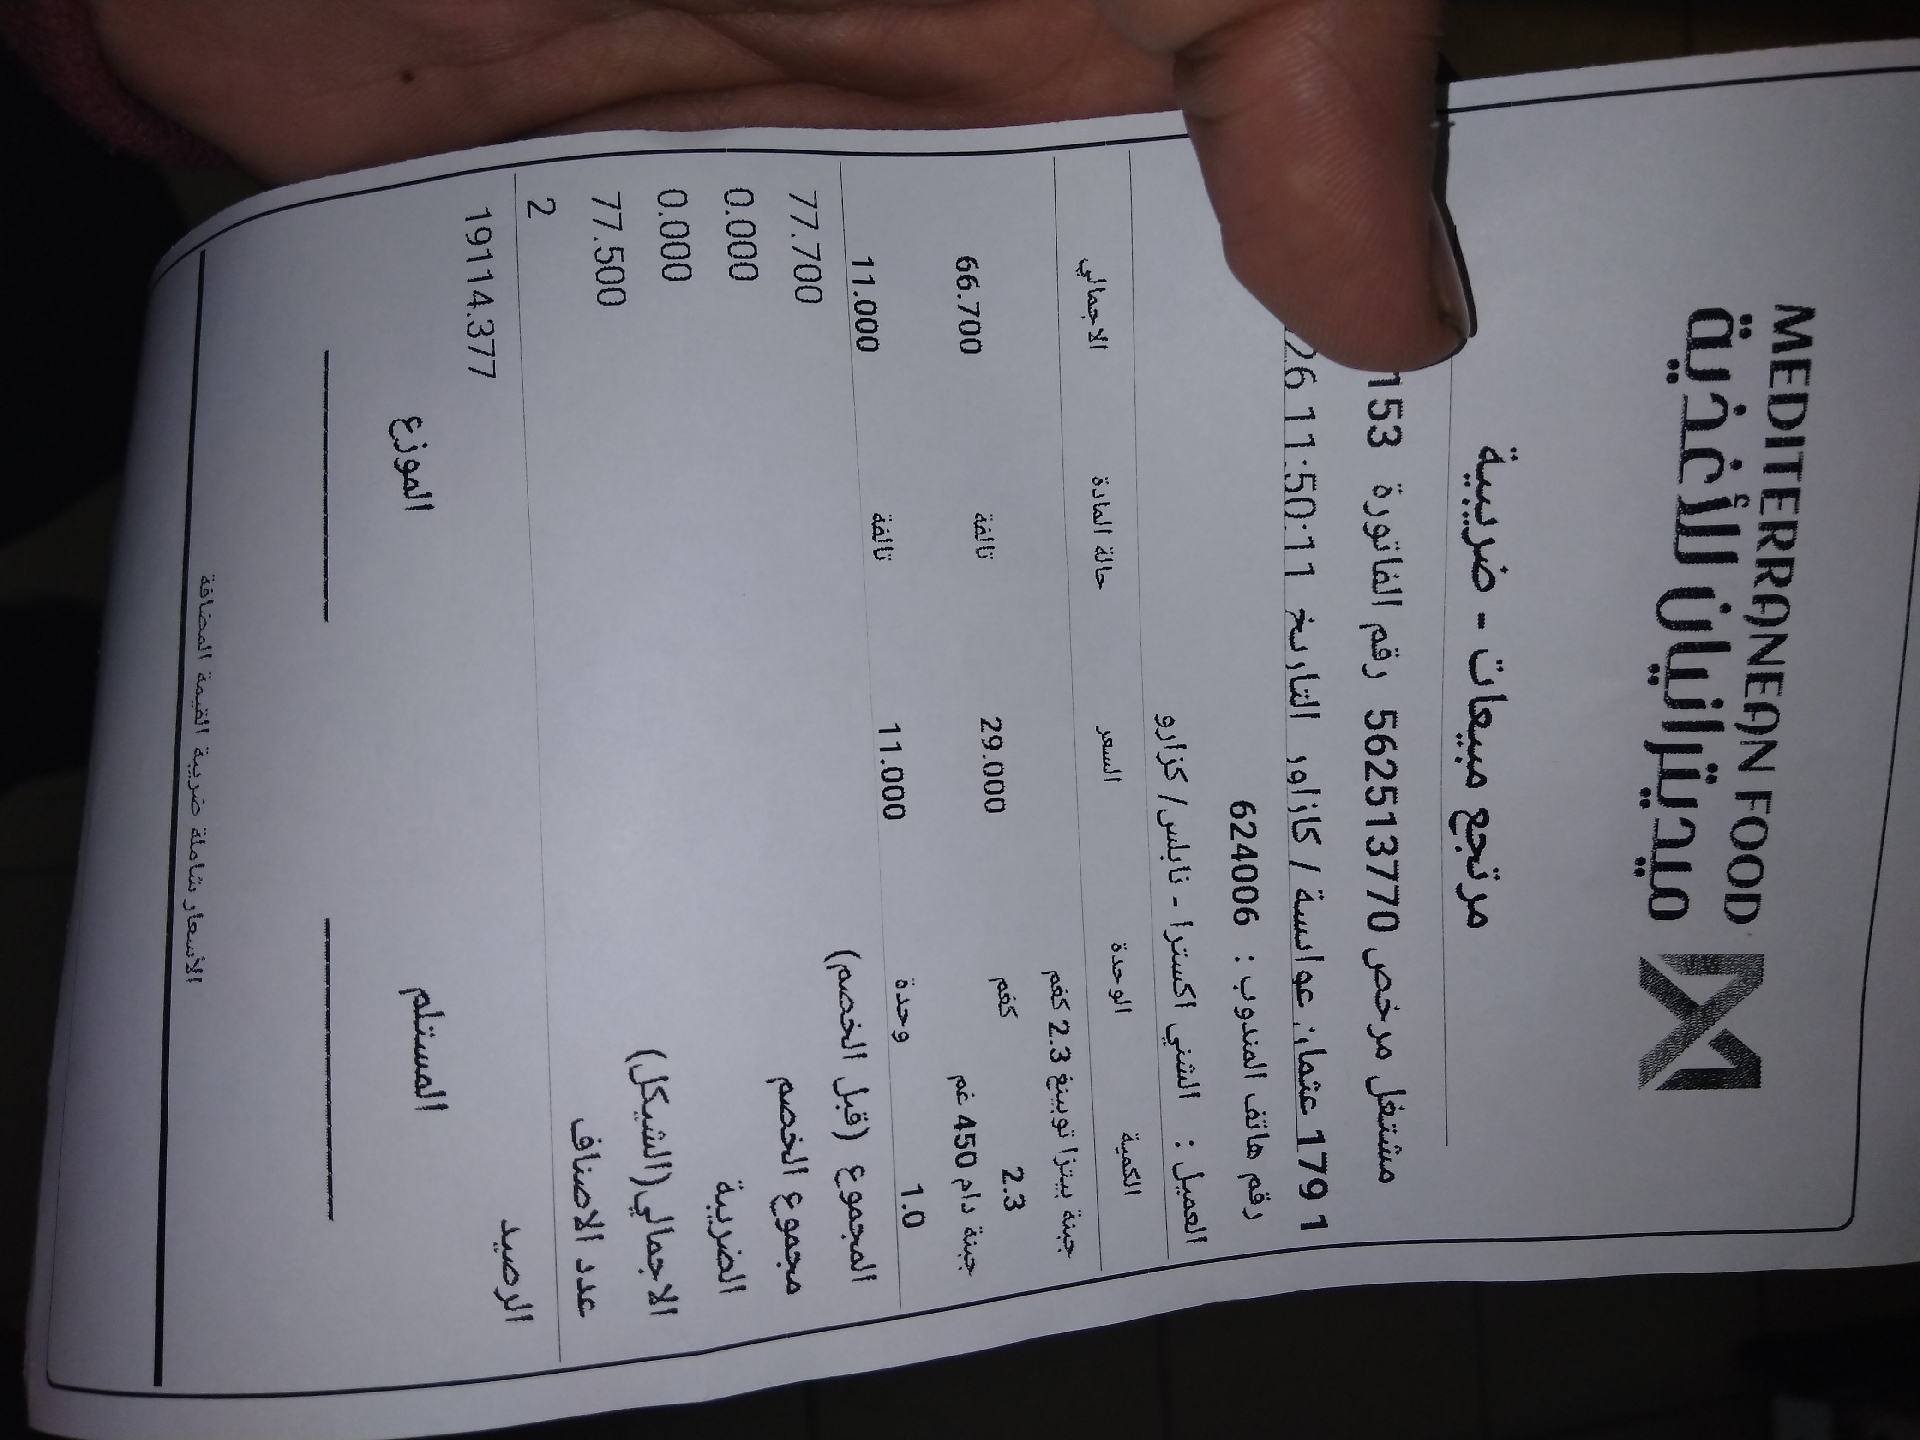 MEDITERRANEAN FOOD
ميديترانيان للأغذية
مرتجع مبيعات - ضريبية
مشتغل مرخص 562513770 رقم الفاتورة 153
1791 عثمان عوايسة / كازاور التاريخ 26 11:50:11
رقم هاتف المندوب : 624006
العميل : الشني اكسترا - نابلس / كزارو
الكمية الوحدة السعر حالة المادة الاجمالي
جبنة بيتزا توبينغ 2.3 كغم
2.3 كغم 29.000 تالفة 66.700
جبنة دام 450 غم
1.0 وحدة 11.000 تالفة 11.000
المجموع (قبل الخصم) 77.700
مجموع الخصم 0.000
الضريبة 0.000
الاجمالي(الشيكل) 77.500
عدد الاصناف 2
الرصيد 19114.377
المستلم الموزع
الاسعار شاملة ضريبة القيمة المضافة